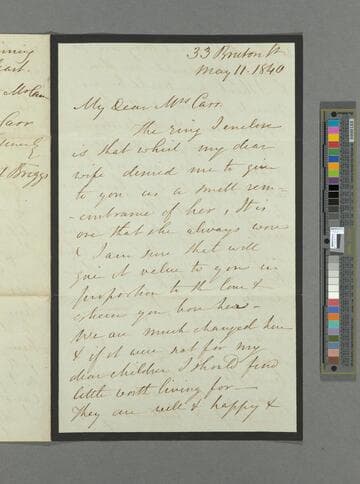 33 Bruton St
May 11. 1840
My Dear Mrs Carr
The ring I enclose
is that which my dear
wife desired me to give
to you as a small rem-
-embrance of her, It is
one that she always wore
& I am sure that will
give it value to you in
proportion to the love &
esteem you bore her -
We are much changed here
& if it were not for my
dear children I should find
little worth living for -
They are well & happy &
Carr
Briggs